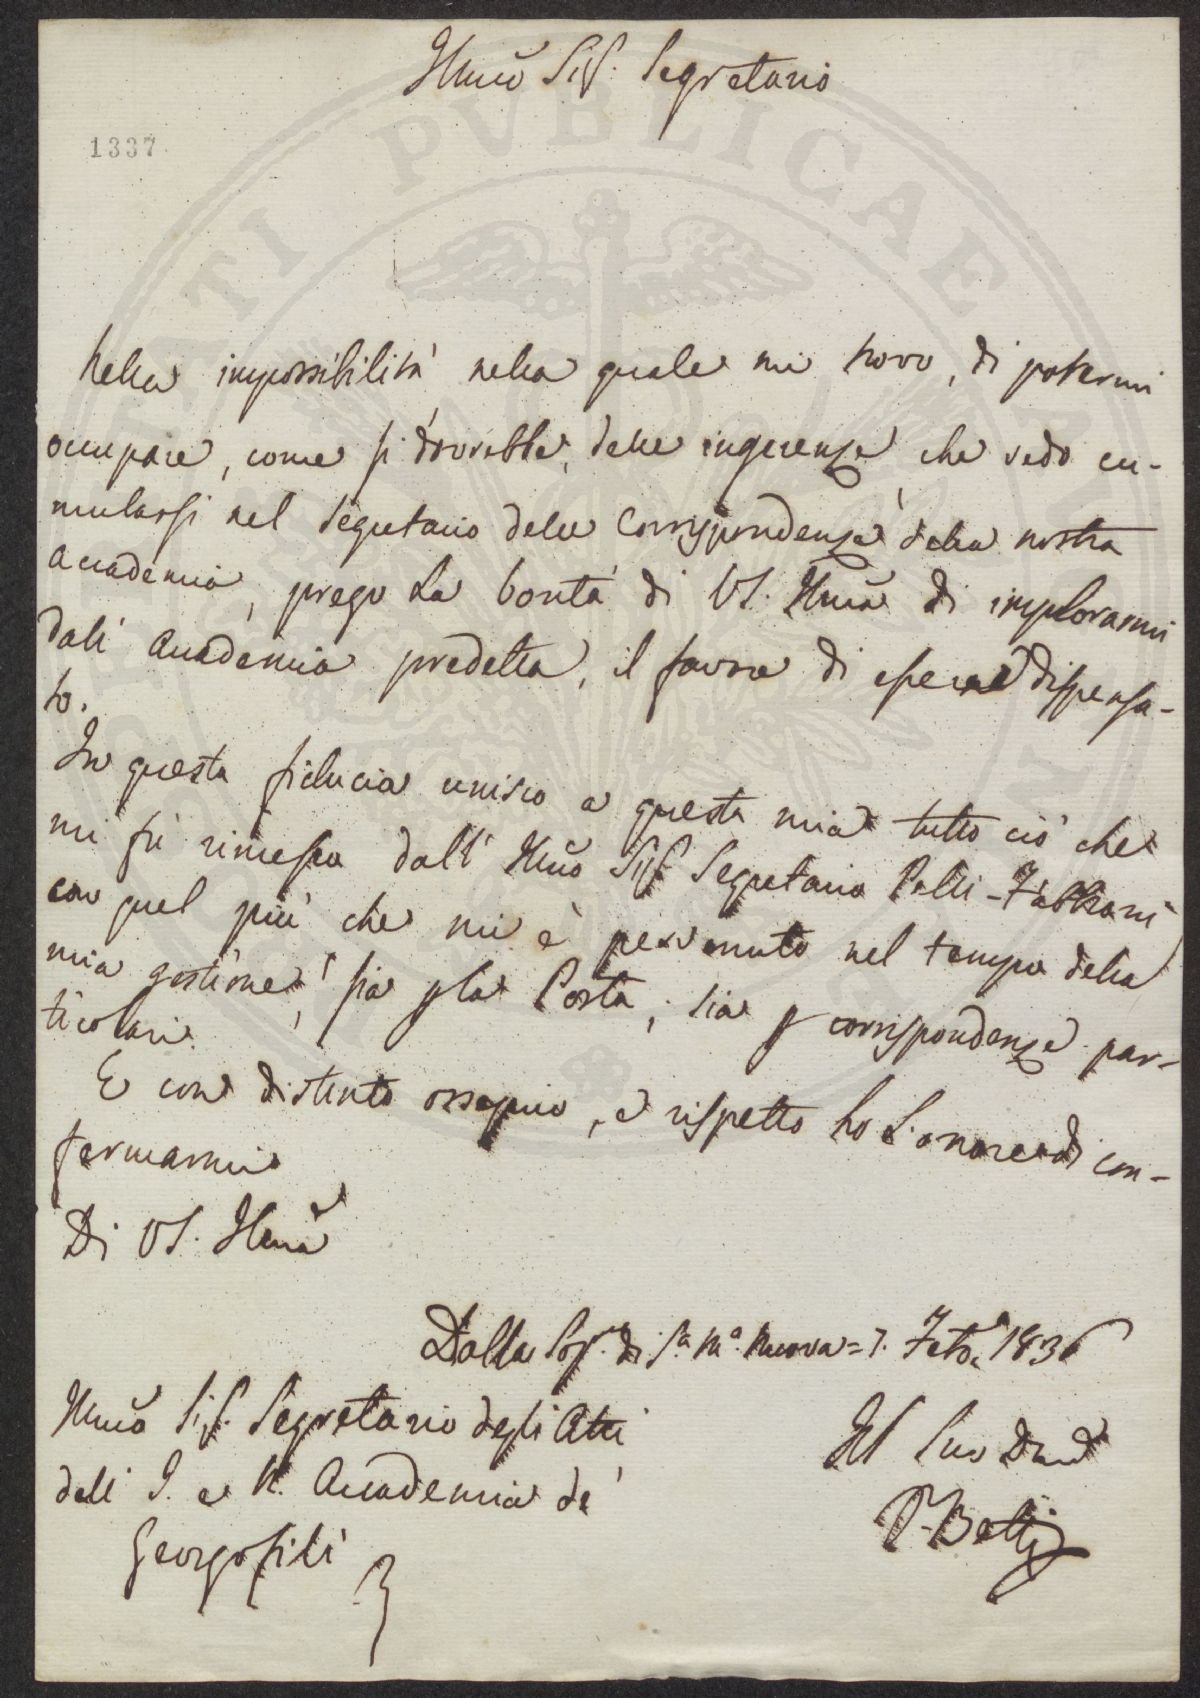 Illmo Sig. Segretario
1337
PVBLICAE
Nella impossibilità nella quale mi trovo, di potermi
occupare, come si dovrebbe, delle ingerenze che vedo cu-
mularsi nel Segretario delle Corrispondenze della nostra
Accademia, prego La bontà di VS. Illma di implorarmi
dall' Accademia predetta, il favore di essere dispensa-
to.
In questa fiducia unisco a questa mia tutto ciò che
mi fù rimesso dall' Illmo Sig Segretario Passi-Fabbroni
con quel più che mi è pervenuto nel tempo della
mia gestione, sia p la Posta, sia p corrispondenze par-
ticolari.
E con distinto ossequio, e rispetto ho L'onore di con-
fermarmi
Di VS. Illma
Dalla Sop. di Sa. Ma. Nuova = 7. Febo. 1836
Illmo Sig. Segretario degli Atti
dell I. e R. Accademia de'
Georgofili
Il Suo Devo
P. Betti